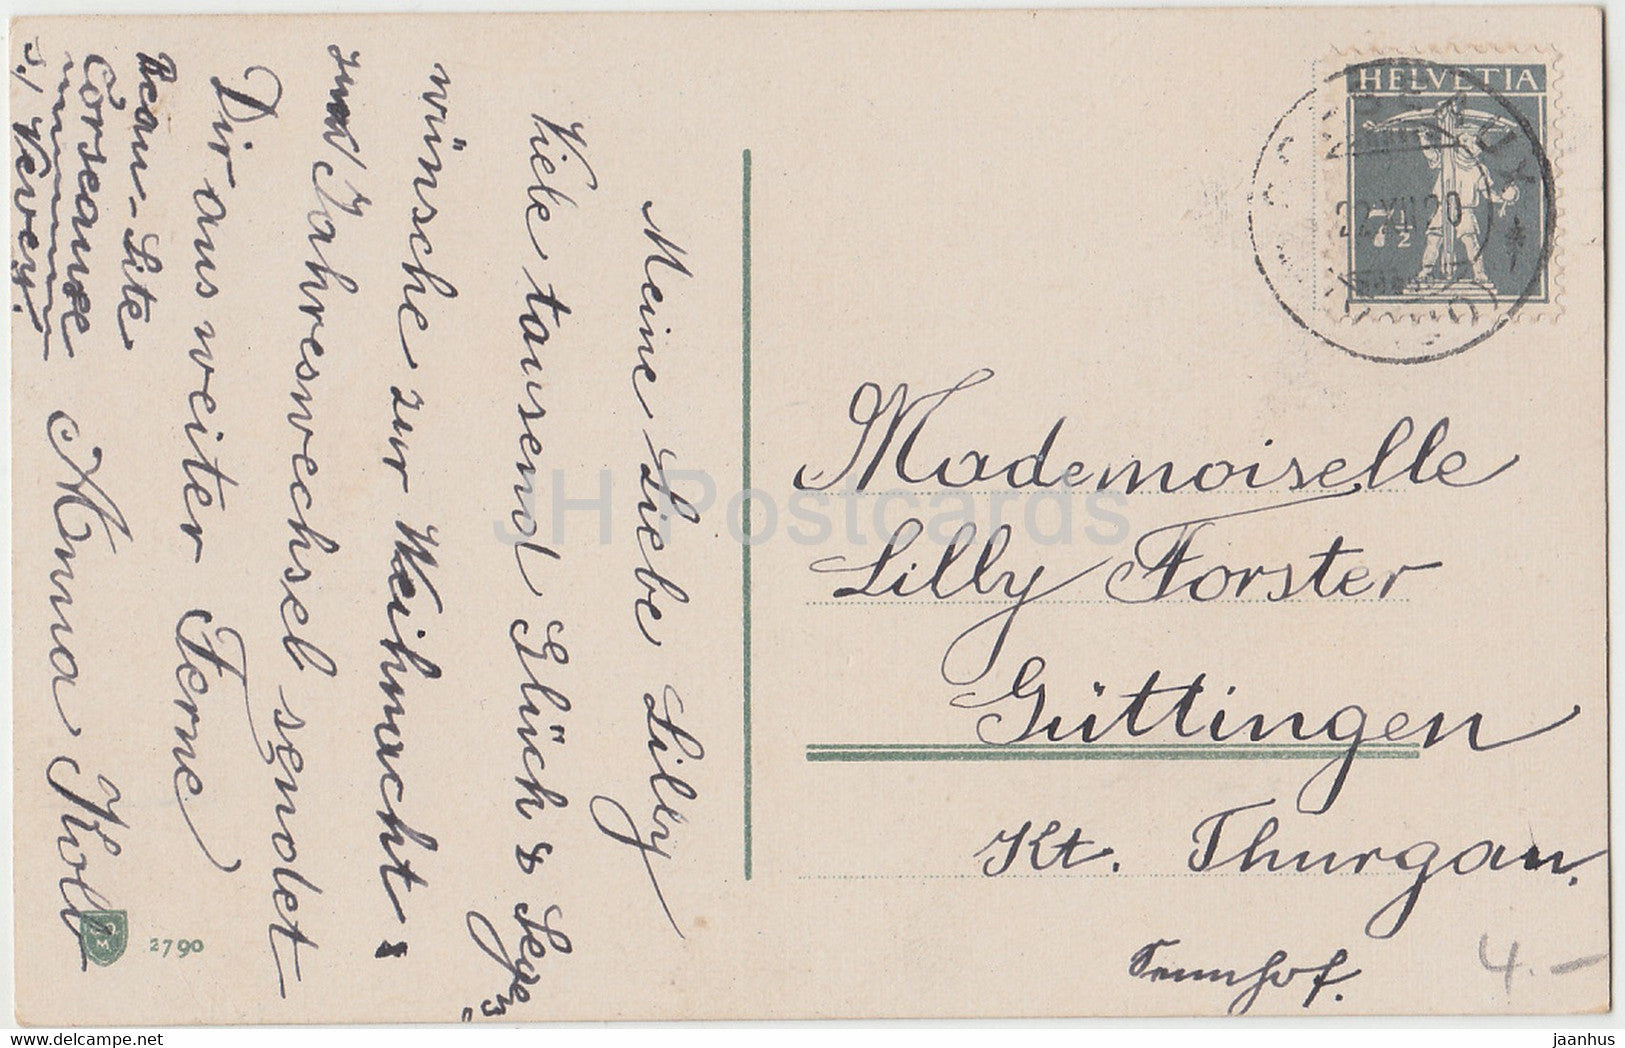 Meine Liebe Lilly
Viele tausend Glück & Segens=
wünsche zur Weihnacht &
zum Jahreswechsel sendet
Dir aus weiter Ferne
Anna Kolb
Beau-Site
Corseaux
s/ Vevey.
HELVETIA
7½
22.XII.20
Mademoiselle
Lilly Forster
Güttingen
Kt. Thurgau.
Sennhof.
4.-
2790
JH Postcards
jaanhus
www.delcampe.net